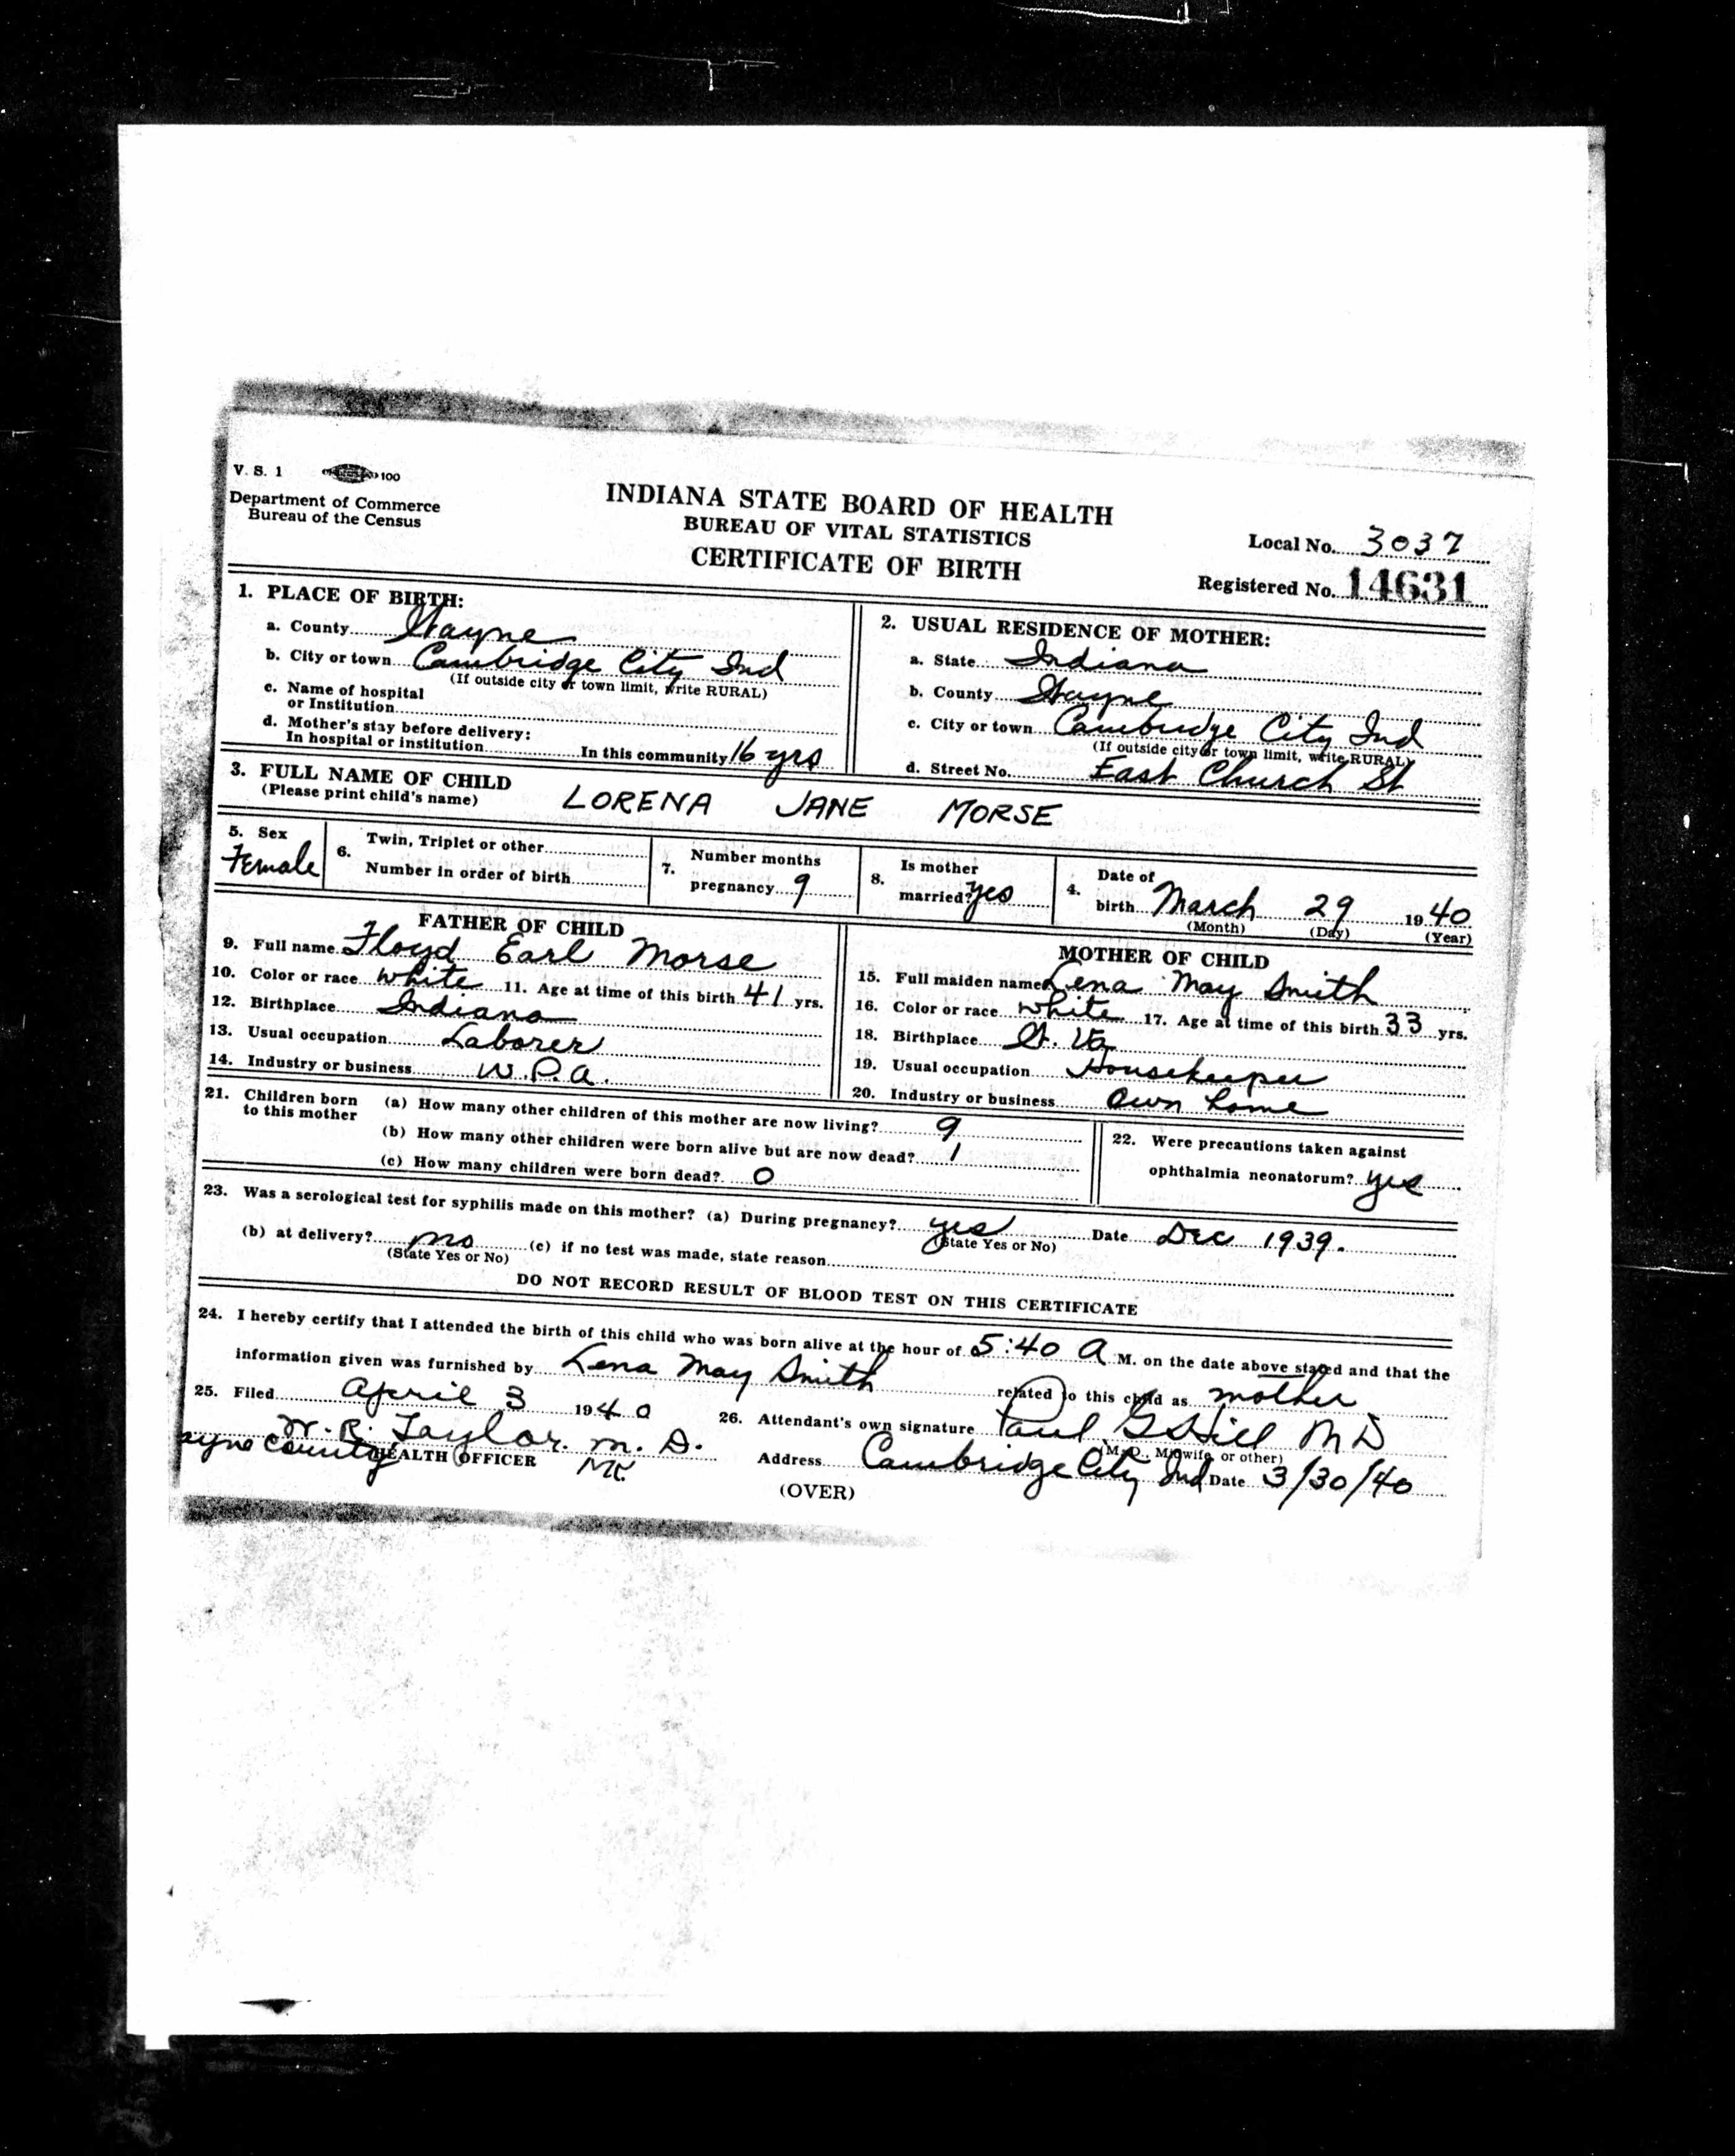 V. S. 1 100
Department of Commerce
Bureau of the Census
INDIANA STATE BOARD OF HEALTH
BUREAU OF VITAL STATISTICS
CERTIFICATE OF BIRTH
Local No. 3037
Registered No. 14631
1. PLACE OF BIRTH:
a. County Wayne
b. City or town Cambridge City Ind
(If outside city or town limit, write RURAL)
c. Name of hospital
or Institution
d. Mother's stay before delivery:
In hospital or institution In this community 16 yrs
2. USUAL RESIDENCE OF MOTHER:
a. State Indiana
b. County Wayne
c. City or town Cambridge City Ind
(If outside city or town limit, write RURAL)
d. Street No. East Church St
3. FULL NAME OF CHILD LORENA JANE MORSE
(Please print child's name)
5. Sex
Female
6. Twin, Triplet or other
Number in order of birth
7. Number months
pregnancy 9
8. Is mother
married? yes
4. Date of
birth March 29 1940
(Month) (Day) (Year)
FATHER OF CHILD
9. Full name Floyd Earl Morse
10. Color or race white 11. Age at time of this birth 41 yrs.
12. Birthplace Indiana
13. Usual occupation Laborer
14. Industry or business W.P.A.
MOTHER OF CHILD
15. Full maiden name Lena May Smith
16. Color or race white 17. Age at time of this birth 33 yrs.
18. Birthplace W. Va
19. Usual occupation Housekeeper
20. Industry or business Own home
21. Children born
to this mother
(a) How many other children of this mother are now living? 9
(b) How many other children were born alive but are now dead? 1
(c) How many children were born dead? 0
22. Were precautions taken against
ophthalmia neonatorum? yes
23. Was a serological test for syphilis made on this mother? (a) During pregnancy? yes Date Dec 1939.
(State Yes or No)
(b) at delivery? no (c) if no test was made, state reason
(State Yes or No)
DO NOT RECORD RESULT OF BLOOD TEST ON THIS CERTIFICATE
24. I hereby certify that I attended the birth of this child who was born alive at the hour of 5:40 A M. on the date above stated and that the
information given was furnished by Lena May Smith related to this child as mother
25. Filed April 3 1940
W. R. Taylor. M. D.
ayne County HEALTH OFFICER MK
26. Attendant's own signature Paul G Hill MD
(M. D., Midwife or other)
Address Cambridge City Ind Date 3/30/40
(OVER)